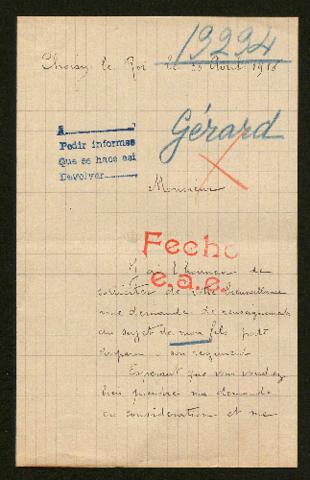 19294
Choisy le Roi le 28 Avril 1916
Gérard
A
Pedir informes
Que se hace asi
Devolver
Monsieur
Fecho
e.a.e.
J'ai l'honneur de
solliciter de votre bienveillance
une demande de renseignements
au sujet de mon fils porté
disparu à son régiment
Espérant que vous voudrez
bien prendre ma demande
en considération et me